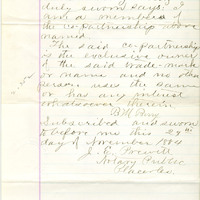 duly sworn says: I
am a member of
the co-partnership above
named.
The said co-partnership
is the exclusive owner
of the said trade-mark
or name and no other
person uses the same
or has any interest
whatsoever therein.
Subscribed and sworn
to before me this 29th
day of November 1884
J. R. Prewitt
Notary Public
Placer Co.